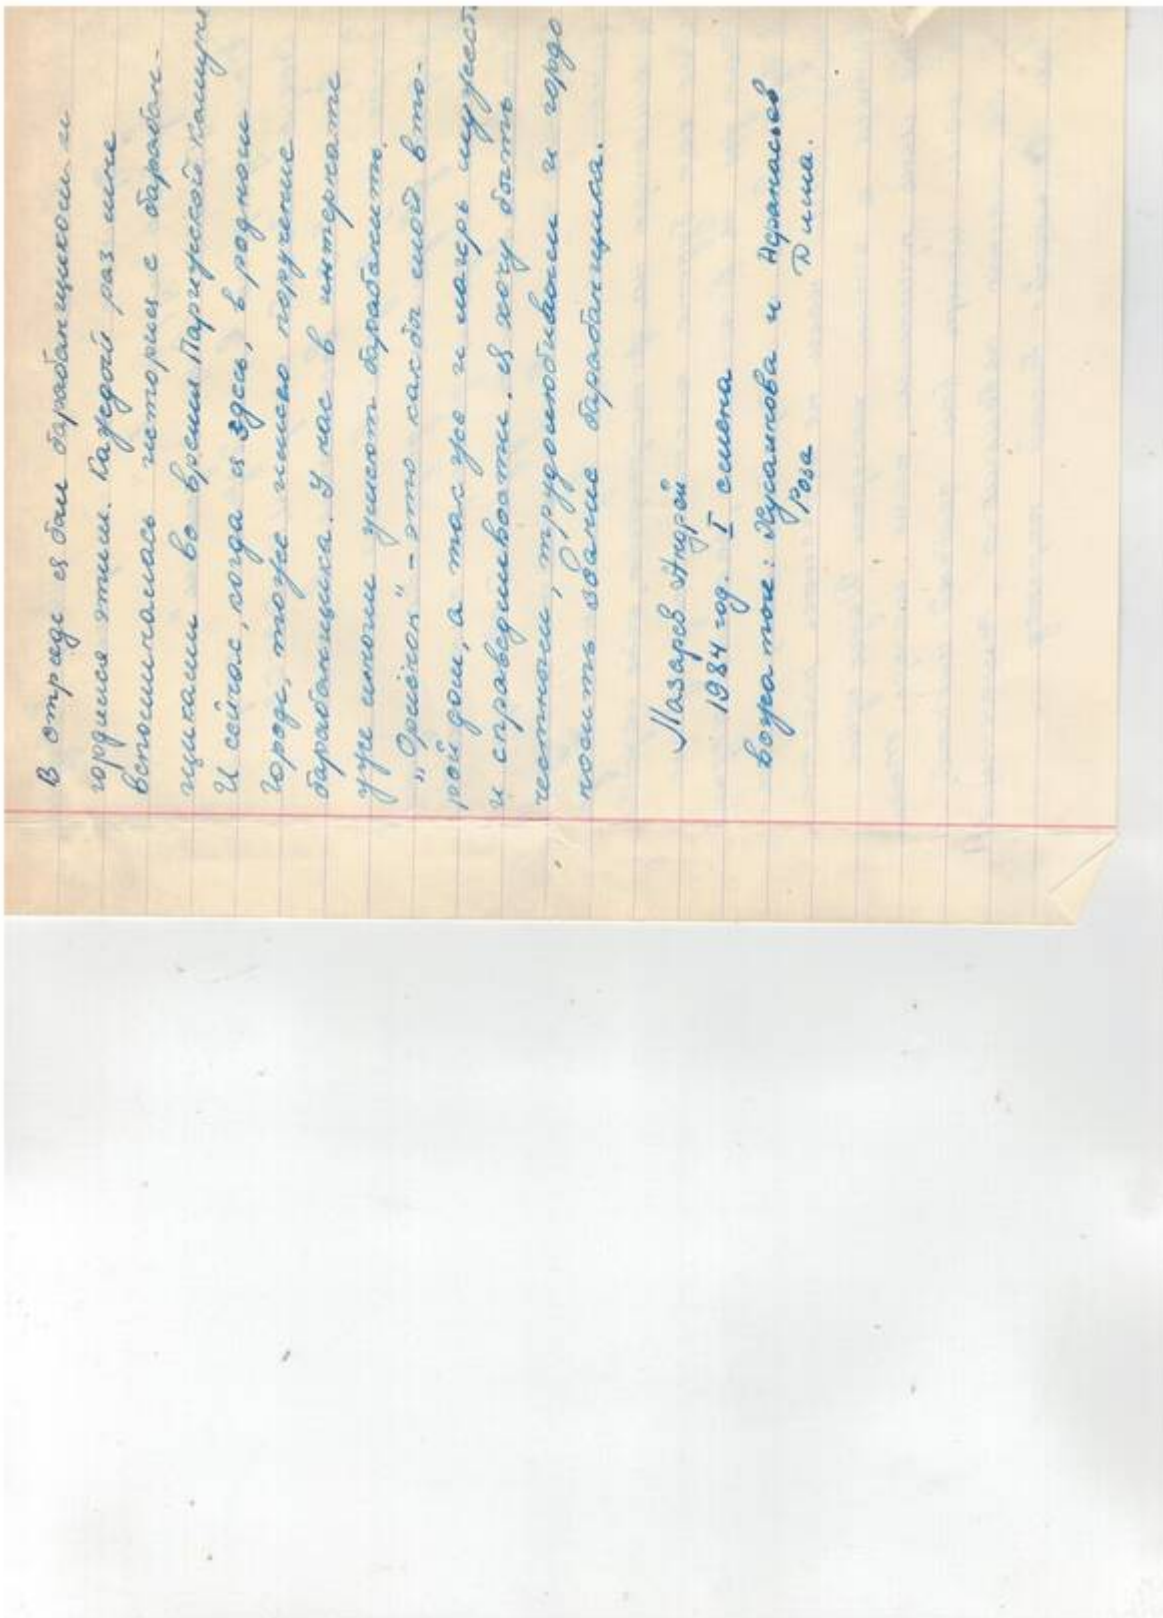 В отряде я был барабанщиком и
гордился этим. Каждый раз мне
вспоминалась история с барабан-
щиками во время Парижской Комуны
И сейчас, когда я здесь, в родном
городе, тоже ношу поручение
барабанщика. У нас в интернате
уже многи умеют барабанить.
„Орлёнок" – это как бы мой вто-
рой дом, а также и лагерь мужест
и справедливости. Я хочу быть
честным, трудолюбивым и гордо
носить звание барабанщика.
Лазарев Андрей
1984 год. I смена
вожатые: Хусаинова и Афанасьев
Роза Дима.